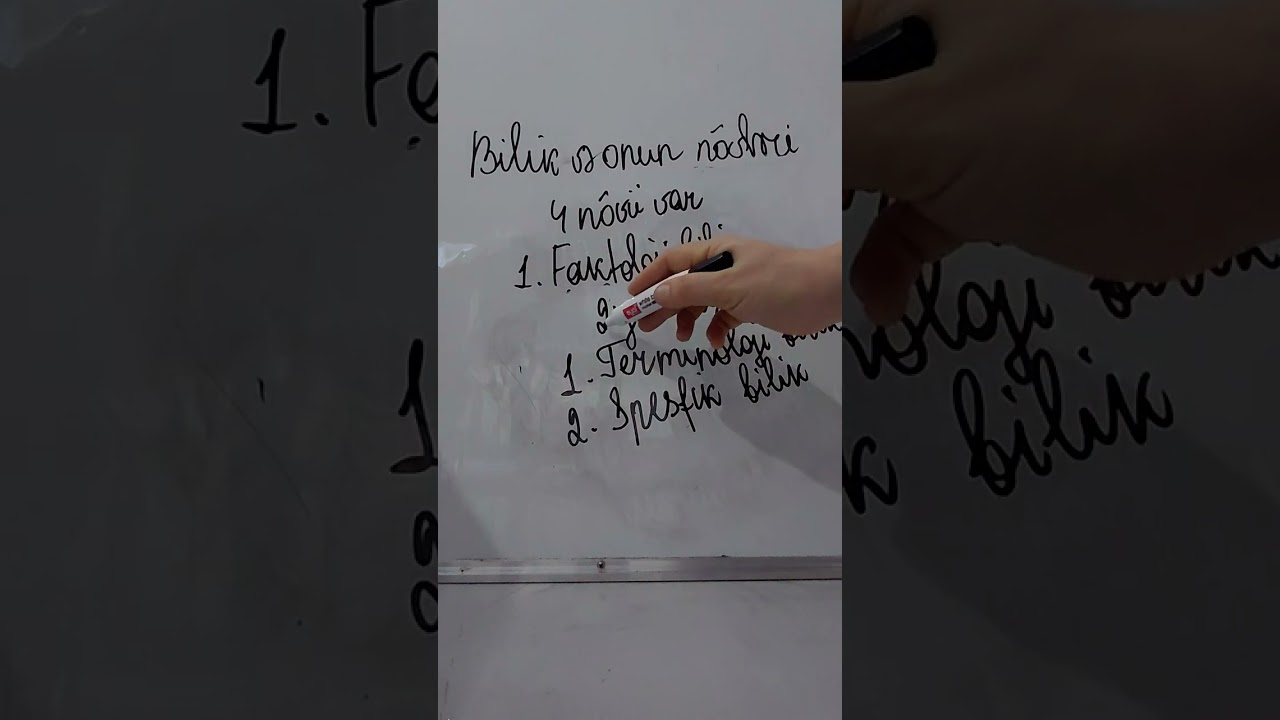 Bilik və onun növləri
4 növü var
1. Faktoloji bili
2.
1. Terminoloji
2. Spesfik bilik